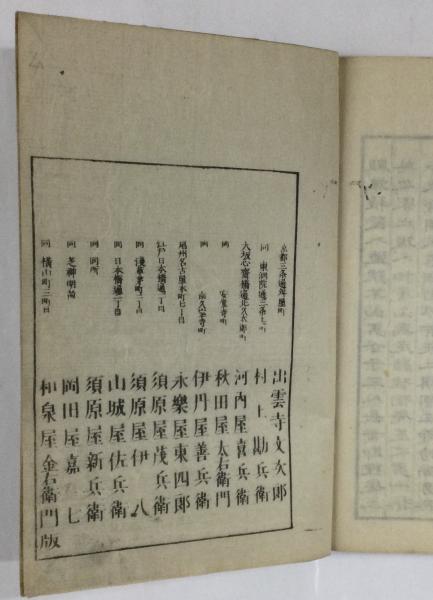 京都三条通升屋町 出雲寺文次郎
同 東洞院通三条上ル町 村上勘兵衛
大坂心斎橋通北久太郎町 河内屋喜兵衛
同 安堂寺町 秋田屋太右衛門
同 南久宝寺町 伊丹屋善兵衛
尾州名古屋本町七丁目 永樂屋東四郎
江戸日本橋通一丁目 須原屋茂兵衛
同 浅草茅町二丁目 須原屋伊八
同 日本橋通二丁目 山城屋佐兵衛
同 同所 須原屋新兵衛
同 芝神明前 岡田屋嘉七
同 横山町三丁目 和泉屋金右衛門版